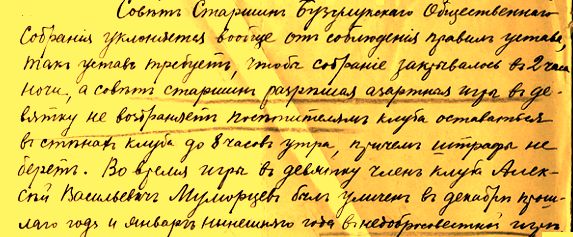 Совѣтъ Старшинъ Бузулукскаго Общественнаго
Собранія уклоняется вообще отъ соблюденія правилъ устава,
такъ уставъ требуетъ, чтобы собраніе закрывалось въ 2 часа
ночи, а совѣтъ старшинъ разрѣшая азартныя игры въ де-
вятку не возбраняетъ посѣтителямъ клуба оставаться
въ стѣнахъ клуба до 8 часовъ утра, причемъ штрафы не
беретъ. Во время игры въ девятку членъ клуба Алек-
сѣй Васильевичъ Муморцевъ былъ уличенъ въ декабрѣ прош-
лаго года и январѣ нынешняго года въ недобросовестной игрѣ